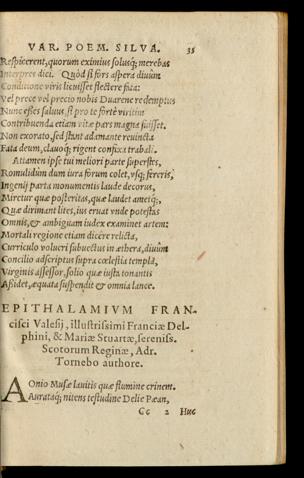 VAR. POEM. SILVA. 35
Respicerent, quorum eximius solusq́; merebas
Interpres dici. Quòd si fors aspera diuûm
Conditione viris licuisset flectere fata:
Vel prece vel precio nobis Duarene redemptus
Nunc esses saluus, si pro te fortè viritim
Contribuenda etiam vitæ pars magna fuisset.
Non exorato, sed stant adamante reuincta
Fata deum, clauoq́; rigent confixa trabali.
Attamen ipse tui meliori parte superstes,
Romulidûm dum iura forum colet, vsq́; fereris,
Ingenij parta monumentis laude decorus,
Miretur quæ posteritas, quæ laudet ametq́;,
Quæ dirimant lites, ius eruat vnde potestas
Omnis, & ambiguam iudex examinet artem:
Mortali regione etiam dicêre relicta,
Curriculo volucri subuectus in æthera, diuûm
Concilio adscriptus supra cœlestia templa,
Virginis assessor, solio quæ iusta tonantis
Assidet, æquata suspendit & omnia lance.
EPITHALAMIVM FRAN-
cisci Valesij, illustrissimi Franciæ Del-
phini, & Mariæ Stuartæ, sereniss.
Scotorum Reginæ, Adr.
Tornebo authore.
AOnio Musæ lauitis quæ flumine crinem.
Aurataq́; nitens testudine Delie Pæan,
Cc 2 Huc